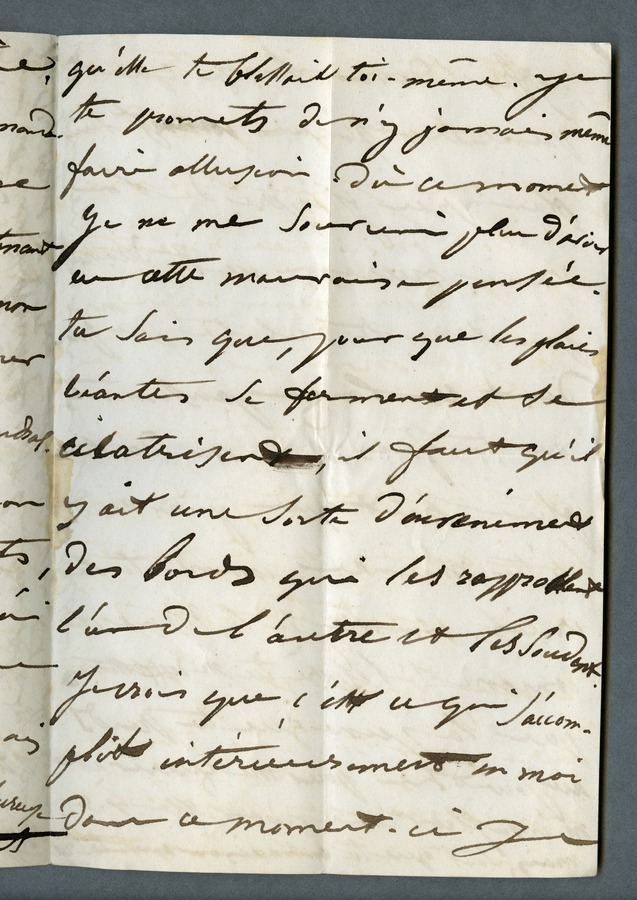 qu'elle te blessait toi-même. Je
te promets de n'y jamais même
faire allusion. Dès ce moment
Je ne me souviens plus d'avoir
eu cette mauvaise pensée.
tu sais que, pour que les plaies
béantes se ferment et se
cicatrisent, il faut qu'il
y ait une sorte
des bords qui les rapprochent
l'un de l'autre et les soudent.
Je crois que c'est ce qui s'accom-
plit intérieurement en moi
dans ce moment-ci Je